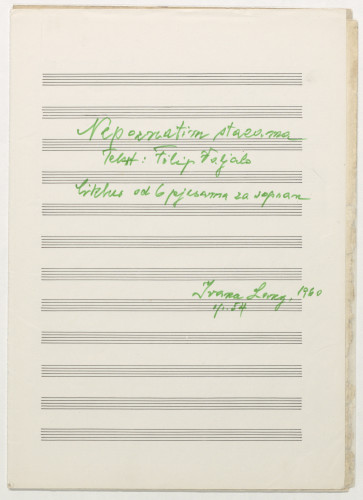 Nepoznatim stazama
Tekst: Filip Faljalo
Ciklus od 6 pjesama za sopran
Ivana Lang, 1960